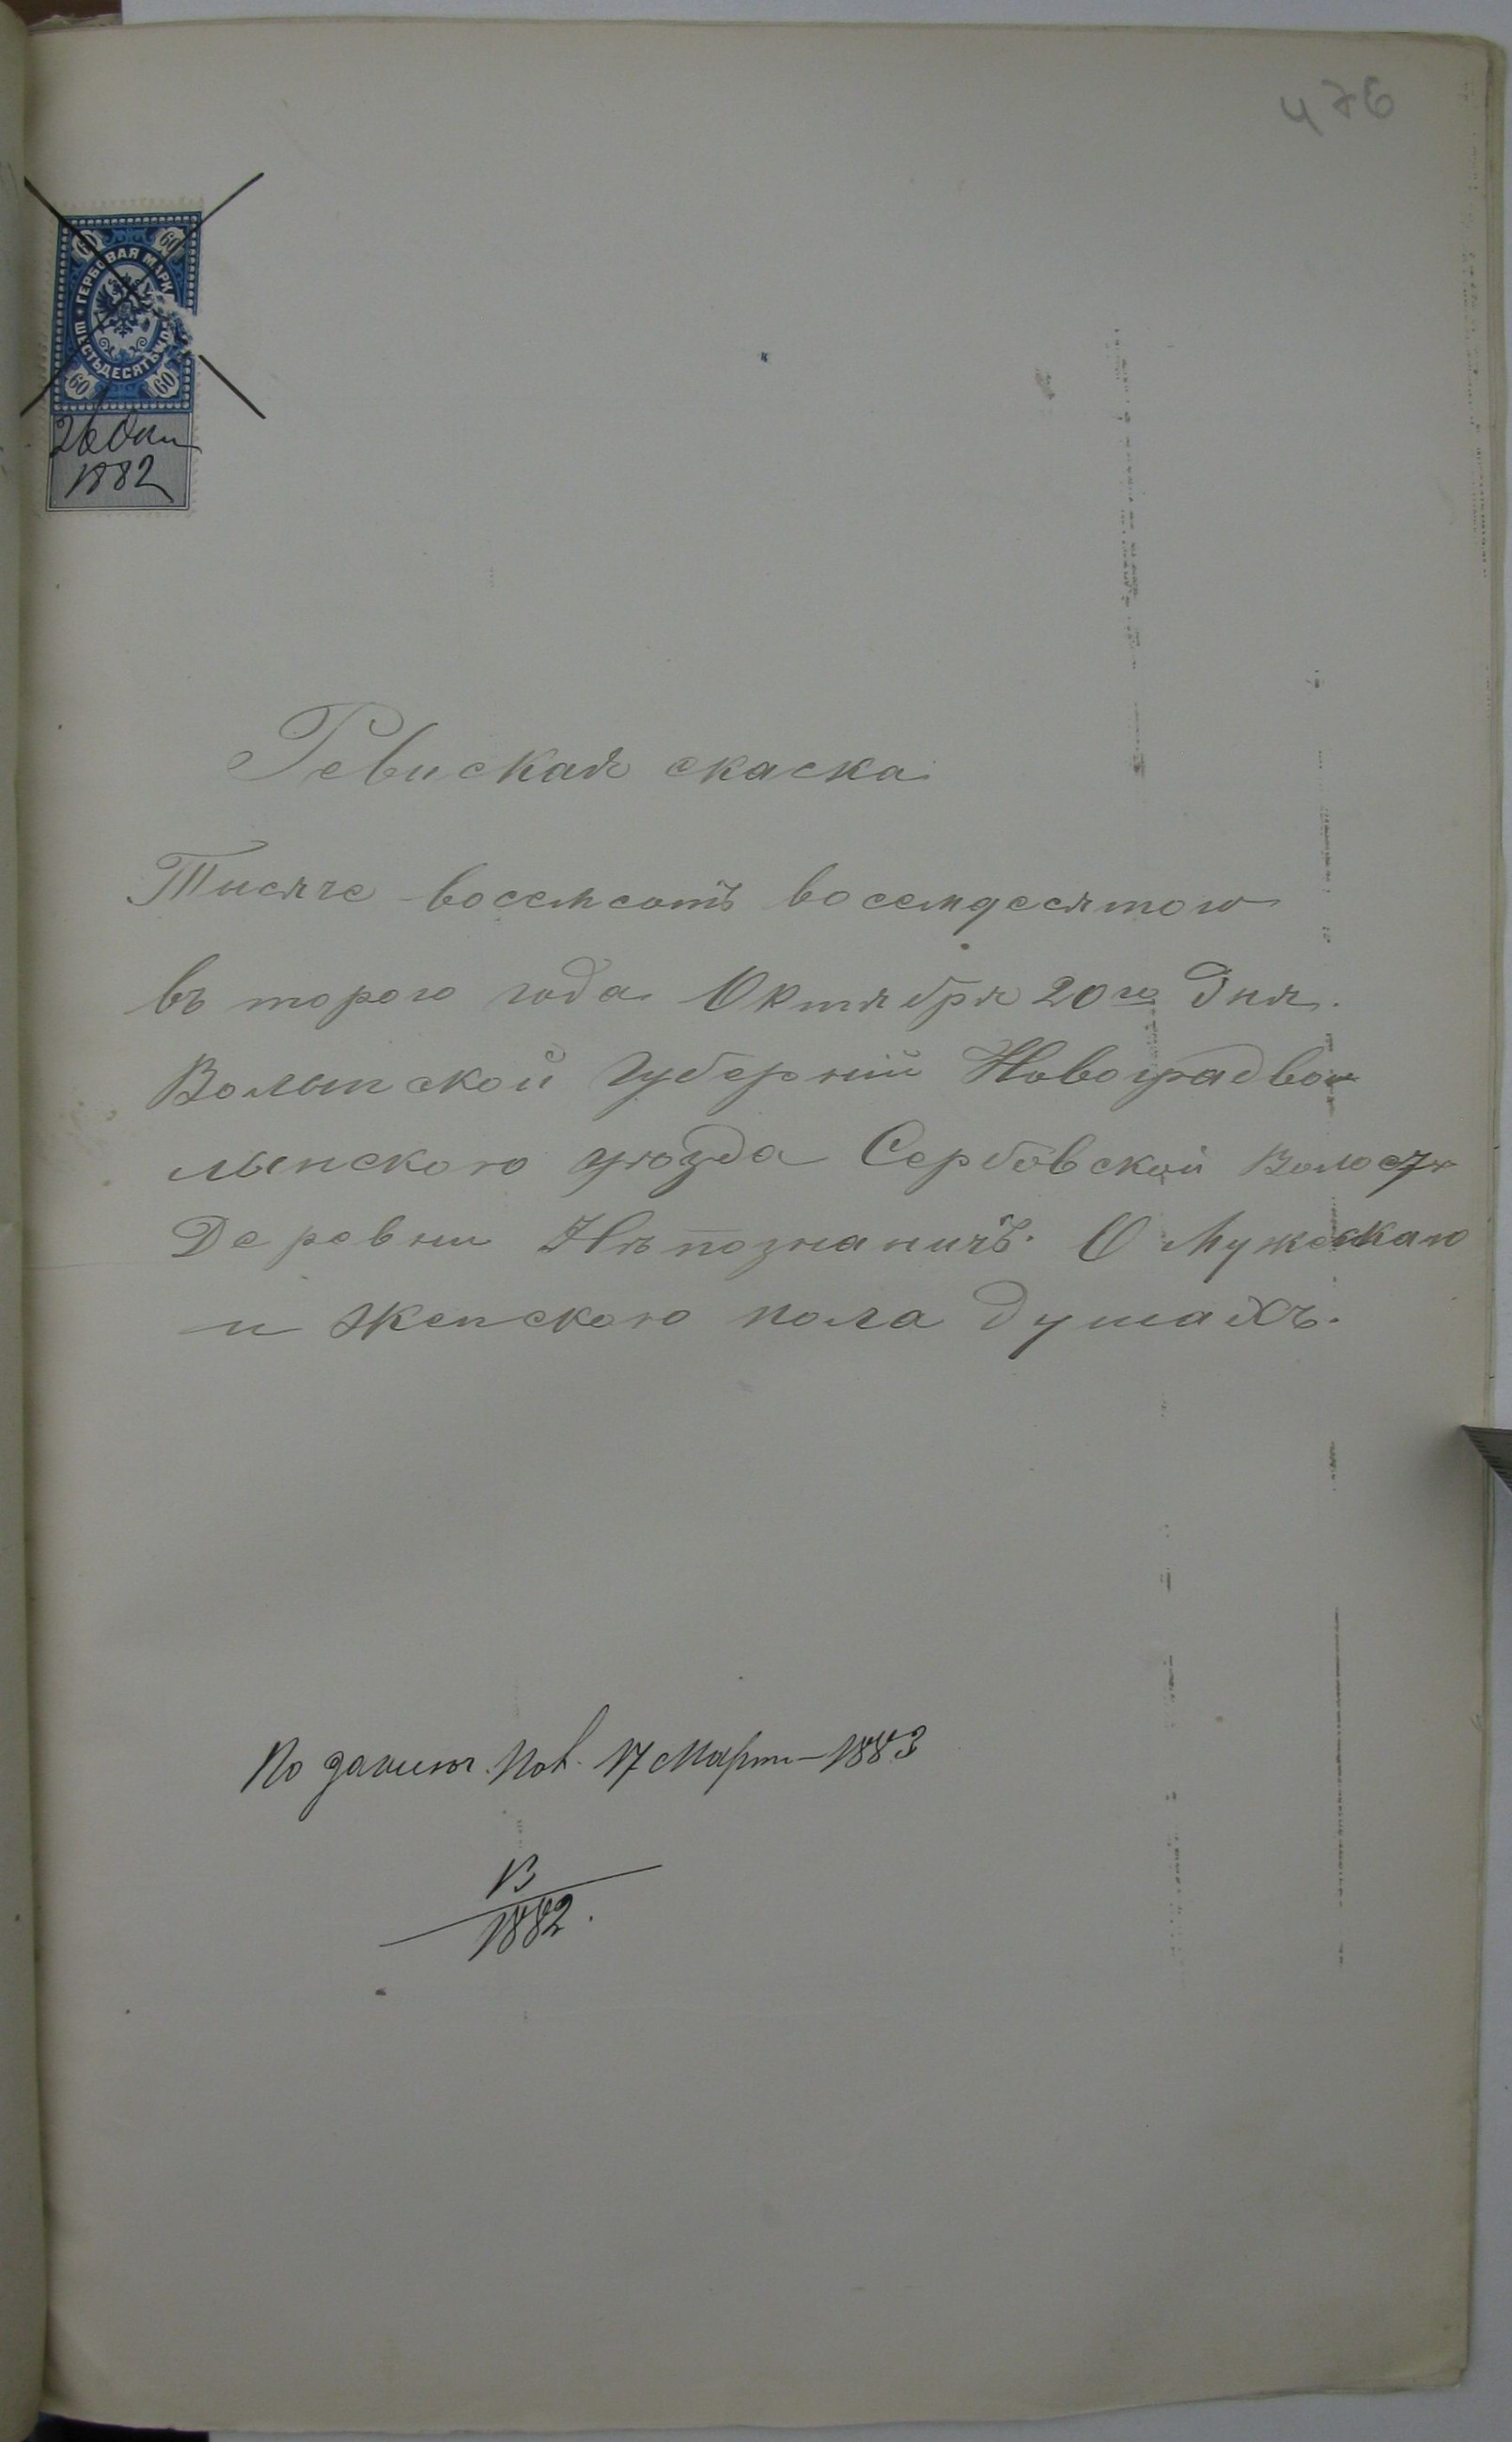 476
60 60
ГЕРБОВАЯ МАРК
ШЕСТЬДЕСЯТЪ
60 60
26 Окт
1882
Ревиская скаска
Тысяче восемсотъ восемдесятого
въ торого года Октября 20го Дня.
Волынской Губерніи Новоградво
лынского уѣзда Сербовской Волости
Деревни Нѣпознаничъ. О Мужескаго
и Женского пола душахъ.
По 17 Март 1883
13
1882.